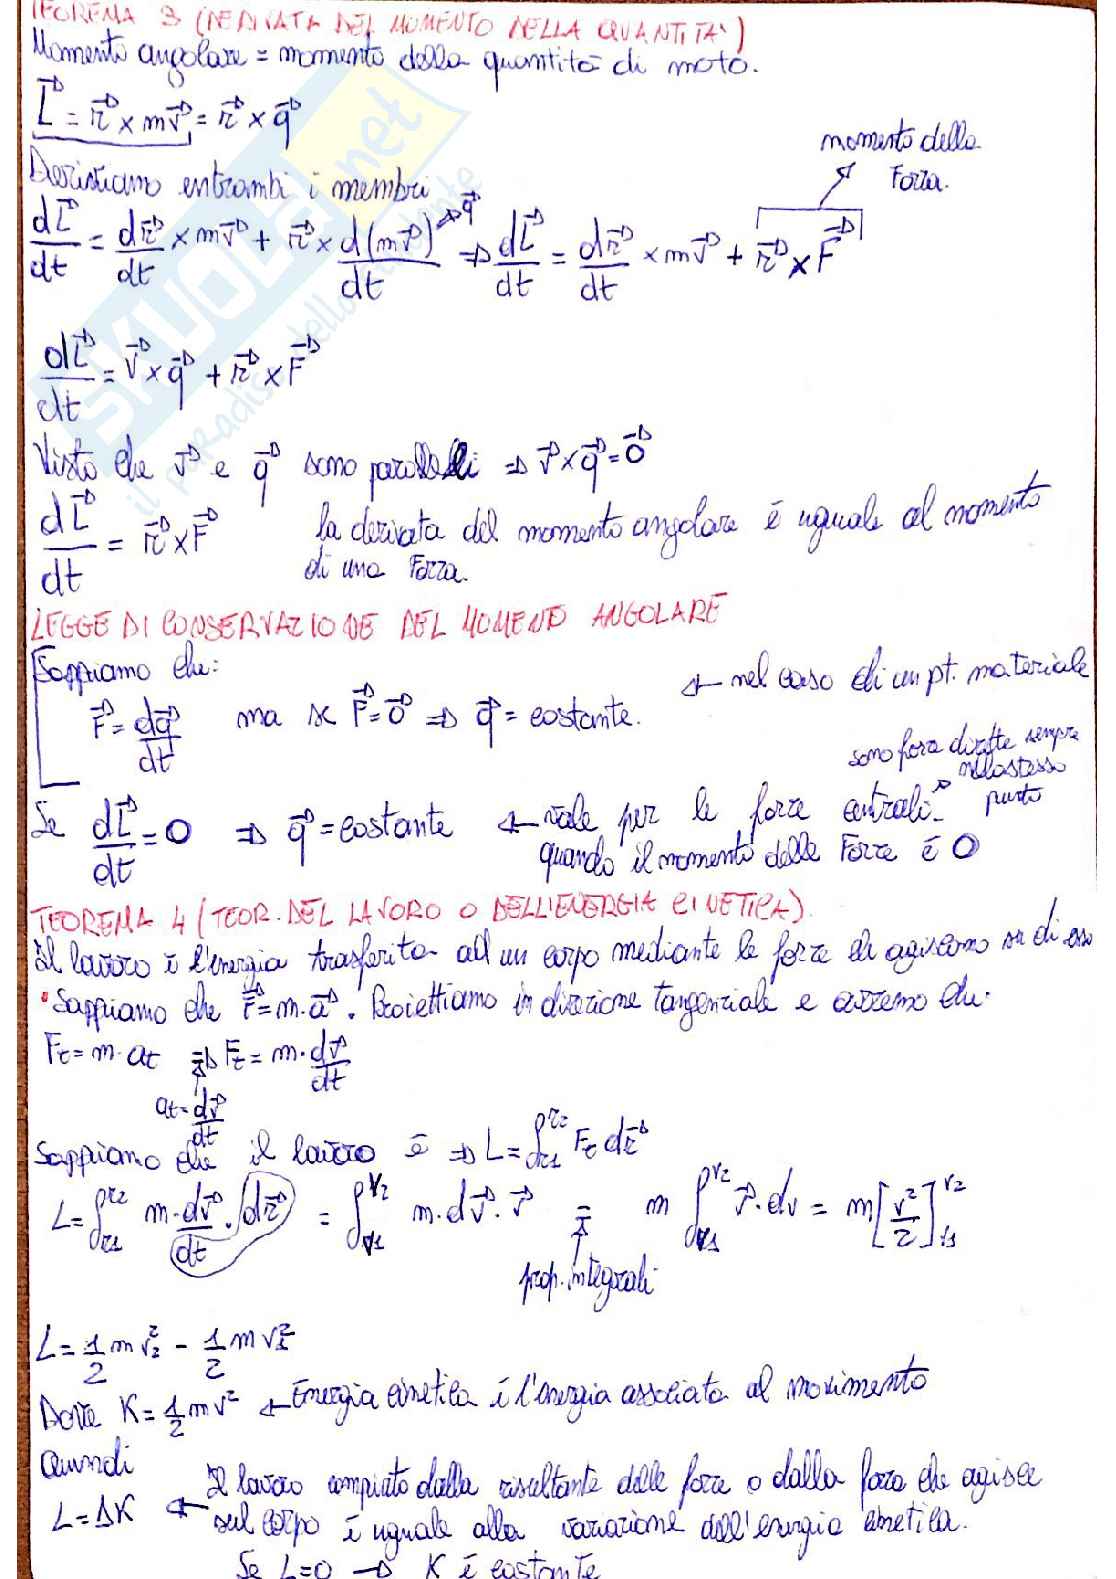 TEOREMA 3 (DERIVATA DEL MOMENTO DELLA QUANTITA')
Momento angolare = momento della quantità di moto.
L = r × mv = r × q
momento della
Forza.
Deriviamo entrambi i membri
dL/dt = dr/dt × mv + r × d(mv)/dt → q ⇒ dL/dt = dr/dt × mv + r × F
dL/dt = v × q + r × F
Visto che v e q sono paralleli ⇒ v × q = 0
dL/dt = r × F La derivata del momento angolare è uguale al momento
di una Forza.
LEGGE DI CONSERVAZIONE DEL MOMENTO ANGOLARE
Sappiamo che:
← nel caso di un pt. materiale
F = dq/dt ma se F = 0 ⇒ q = costante.
sono forze dirette sempre
nello stesso
punto
Se dL/dt = 0 ⇒ q = costante ← vale per le forze centrali
quando il momento delle Forze è 0
TEOREMA 4 (TEOR. DEL LAVORO O DELL'ENERGIA CINETICA).
Il lavoro è l'energia trasferita ad un corpo mediante le forze che agiscono su di esso
• Sappiamo che F = m·a. Proiettiamo in direzione tangenziale e avremo che:
Ft = m·at ⇒ Ft = m·dv/dt
at = dv/dt
Sappiamo che il lavoro è ⇒ L = ∫r1 r2 Ft dr
L = ∫r1 r2 m·dv/dt·dr = ∫v1 v2 m·dv·v = m ∫v1 v2 v·dv = m[v²/2]v1 v2
prop. integrali
L = 1/2 m v2² - 1/2 m v1²
Dove K = 1/2 mv² ← Energia cinetica è l'energia associata al movimento
Quindi
L = ΔK ← Il lavoro compiuto dalla risultante delle forze o dalla forza che agisce
sul corpo è uguale alla variazione dell'energia cinetica.
Se L=0 → K è costante
SKUOLA.net
il paradiso dello studente